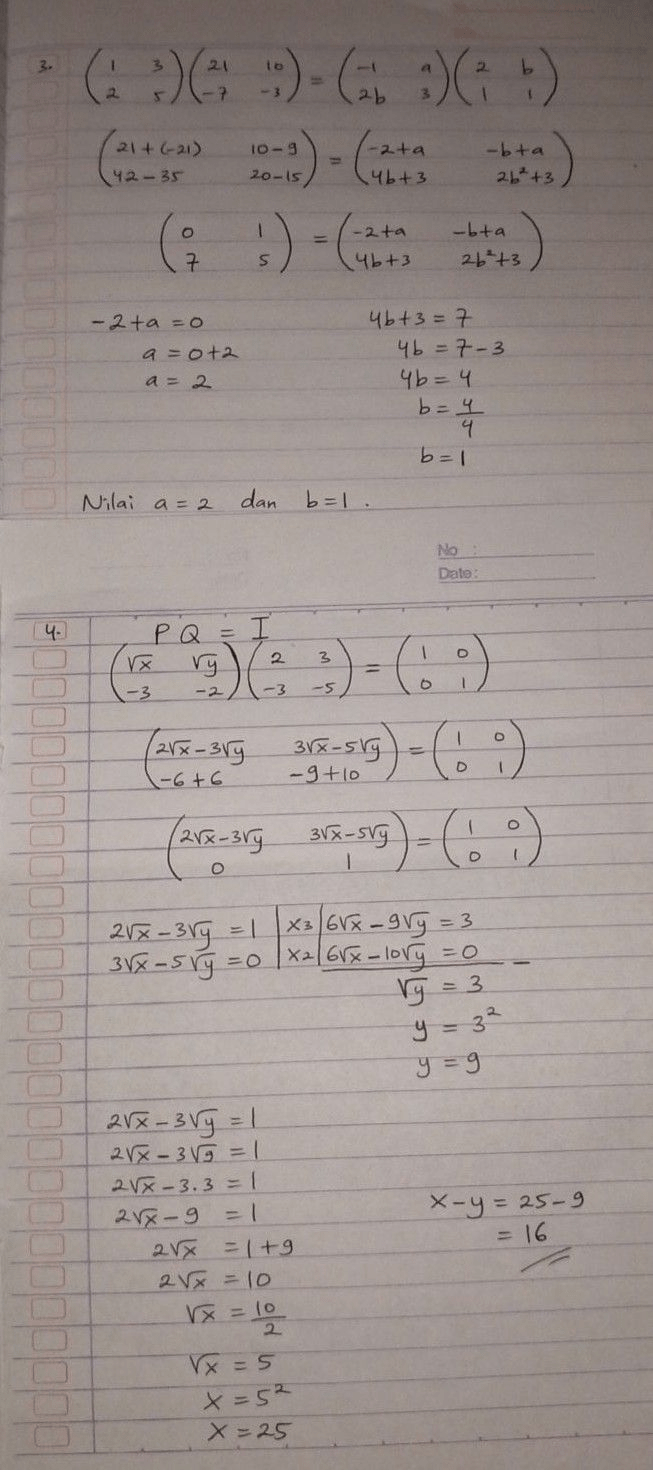 3. ( 1 3 ) ( 21 10 ) = ( -1 a ) ( 2 b )
( 2 5 ) ( -7 -3 ) = ( 2b 3 ) ( 1 1 )
( 21+(-21) 10-9 ) = ( -2+a -b+a )
( 42-35 20-15 ) = ( 4b+3 2b²+3 )
( 0 1 ) = ( -2+a -b+a )
( 7 5 ) = ( 4b+3 2b²+3 )
-2+a = 0 4b+3 = 7
a = 0+2 4b = 7-3
a = 2 4b = 4
b = 4/4
b = 1
Nilai a = 2 dan b = 1 .
No :
Date:
4. P Q = I
( √x √y ) ( 2 3 ) = ( 1 0 )
( -3 -2 ) ( -3 -5 ) = ( 0 1 )
( 2√x-3√y 3√x-5√y ) = ( 1 0 )
( -6+6 -9+10 ) = ( 0 1 )
( 2√x-3√y 3√x-5√y ) = ( 1 0 )
( 0 1 ) = ( 0 1 )
2√x-3√y = 1 | x3 | 6√x-9√y = 3
3√x-5√y = 0 | x2 | 6√x-10√y = 0 -
√y = 3
y = 3²
y = 9
2√x-3√y = 1
2√x-3√9 = 1
2√x-3.3 = 1
2√x-9 = 1
2√x = 1+9
2√x = 10
√x = 10/2
√x = 5
x = 5²
x = 25
x-y = 25-9
= 16